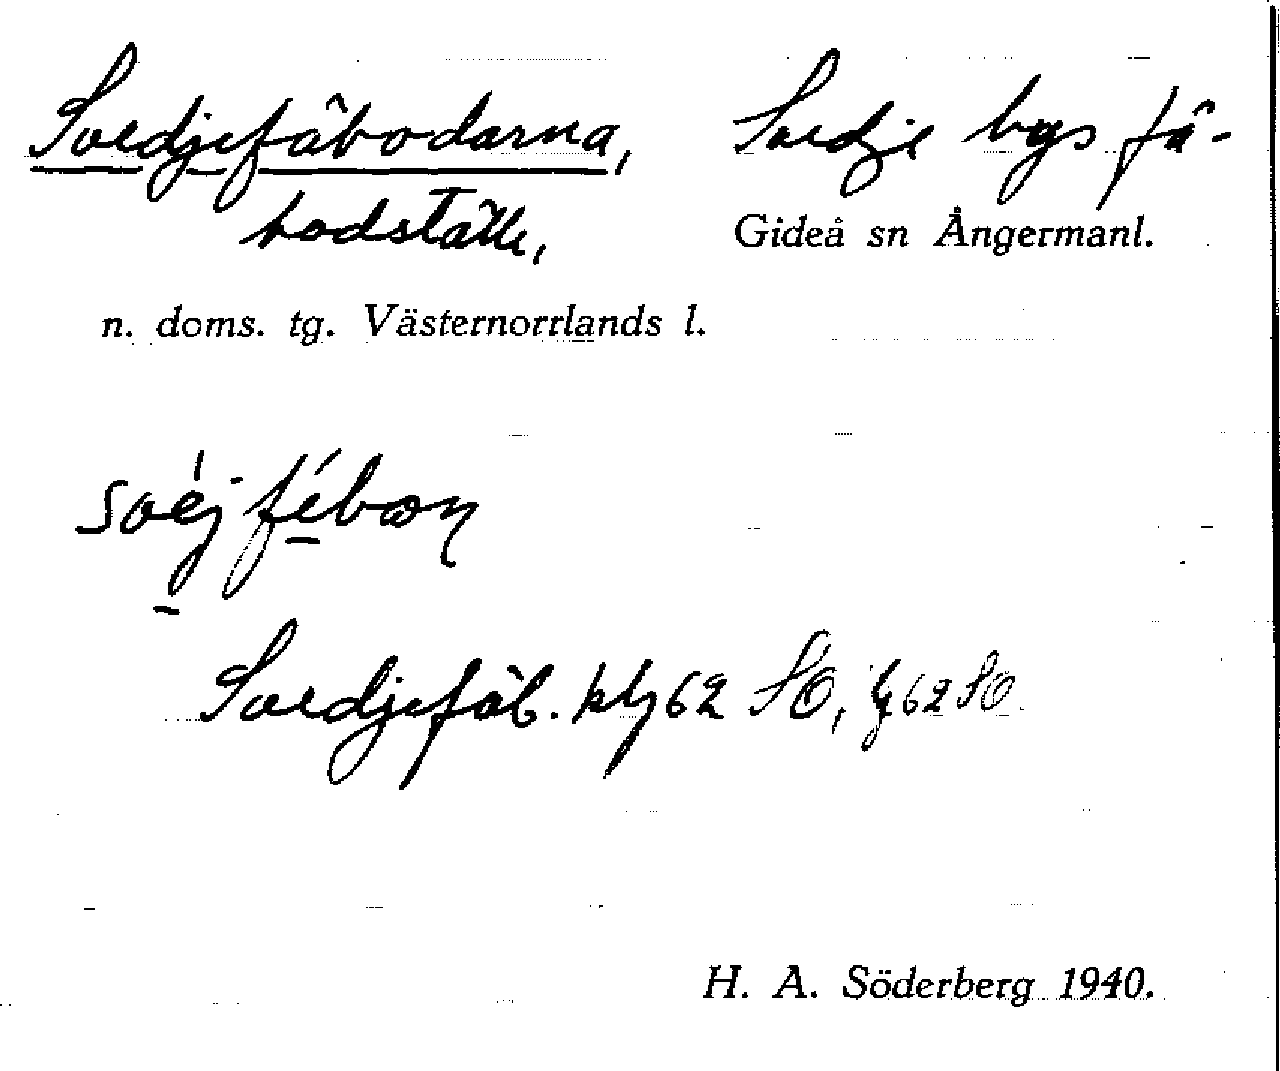 Svedjefäbodarna, Svedje bys fä-
bodställe, Gideå sn Ångermanl.
n. doms. tg. Västernorrlands l.
Svedjefäb. 62 SO, 62 SO
H. A. Söderberg 1940.